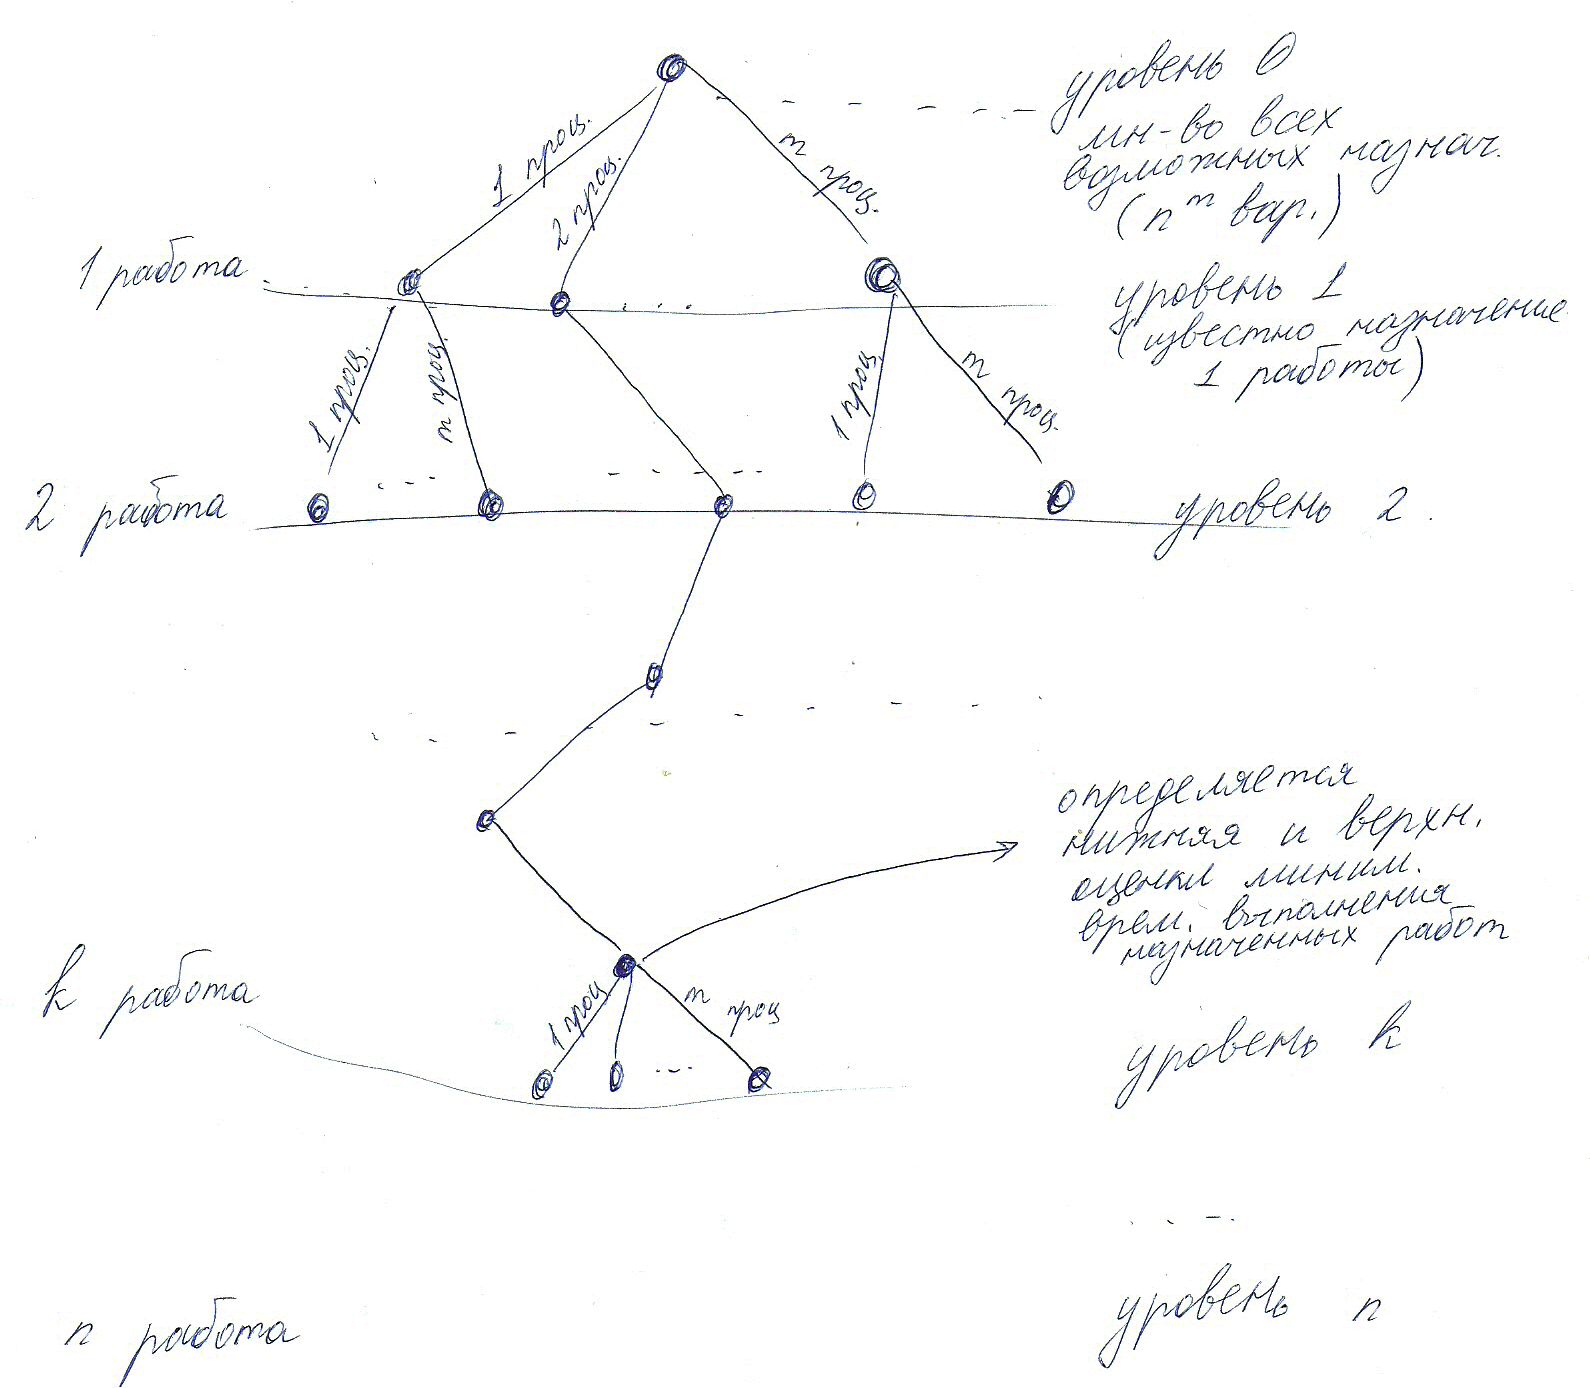 уровень 0
мн-во всех
возможных назнач.
(nᵐ вар.)
1 проц.
2 проц.
m проц.
1 работа
уровень 1
(известно назначение
1 работы)
1 проц.
m проц.
1 проц.
m проц.
2 работа
уровень 2.
определяется
нижняя и верхн.
оценки миним.
врем. выполнения
назначенных работ
k работа
1 проц
m проц
уровень k
n работа
уровень n